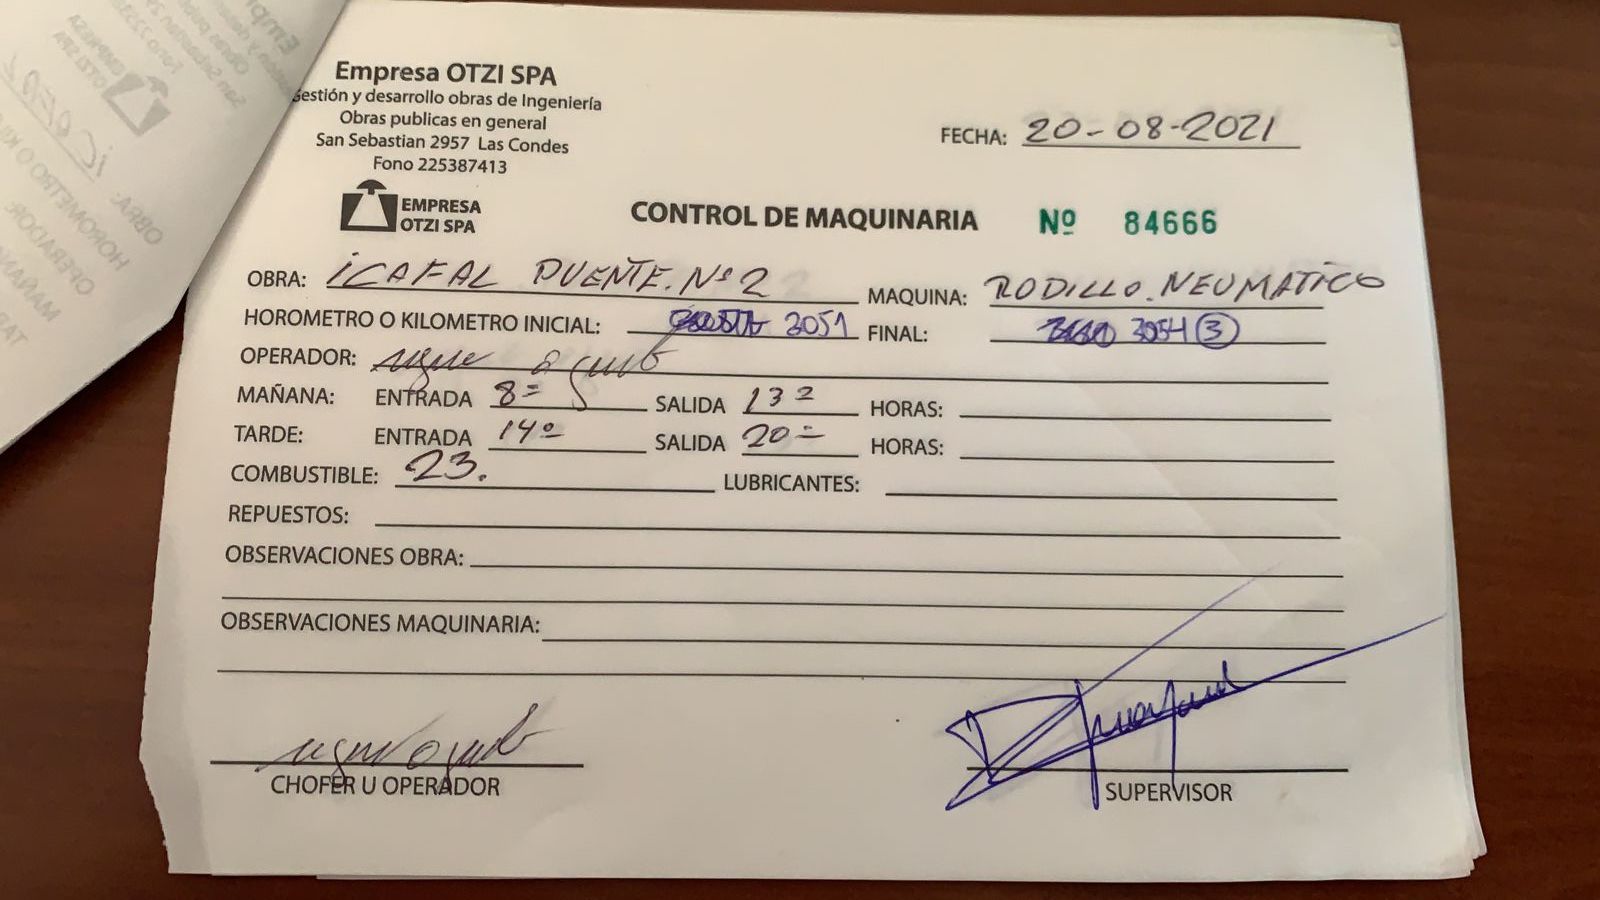 Empresa OTZI SPA
Gestión y desarrollo obras de Ingeniería
Obras publicas en general
San Sebastian 2957 Las Condes
Fono 225387413
FECHA: 20-08-2021
EMPRESA
OTZI SPA
CONTROL DE MAQUINARIA Nº 84666
OBRA: ICAFAL PUENTE. Nº 2 MAQUINA: RODILLO. NEUMATICO
HOROMETRO O KILOMETRO INICIAL: 3051 FINAL: 3054 3
OPERADOR:
MAÑANA: ENTRADA 8= SALIDA 13= HORAS:
TARDE: ENTRADA 14º SALIDA 20= HORAS:
COMBUSTIBLE: 23. LUBRICANTES:
REPUESTOS:
OBSERVACIONES OBRA:
OBSERVACIONES MAQUINARIA:
CHOFER U OPERADOR
SUPERVISOR